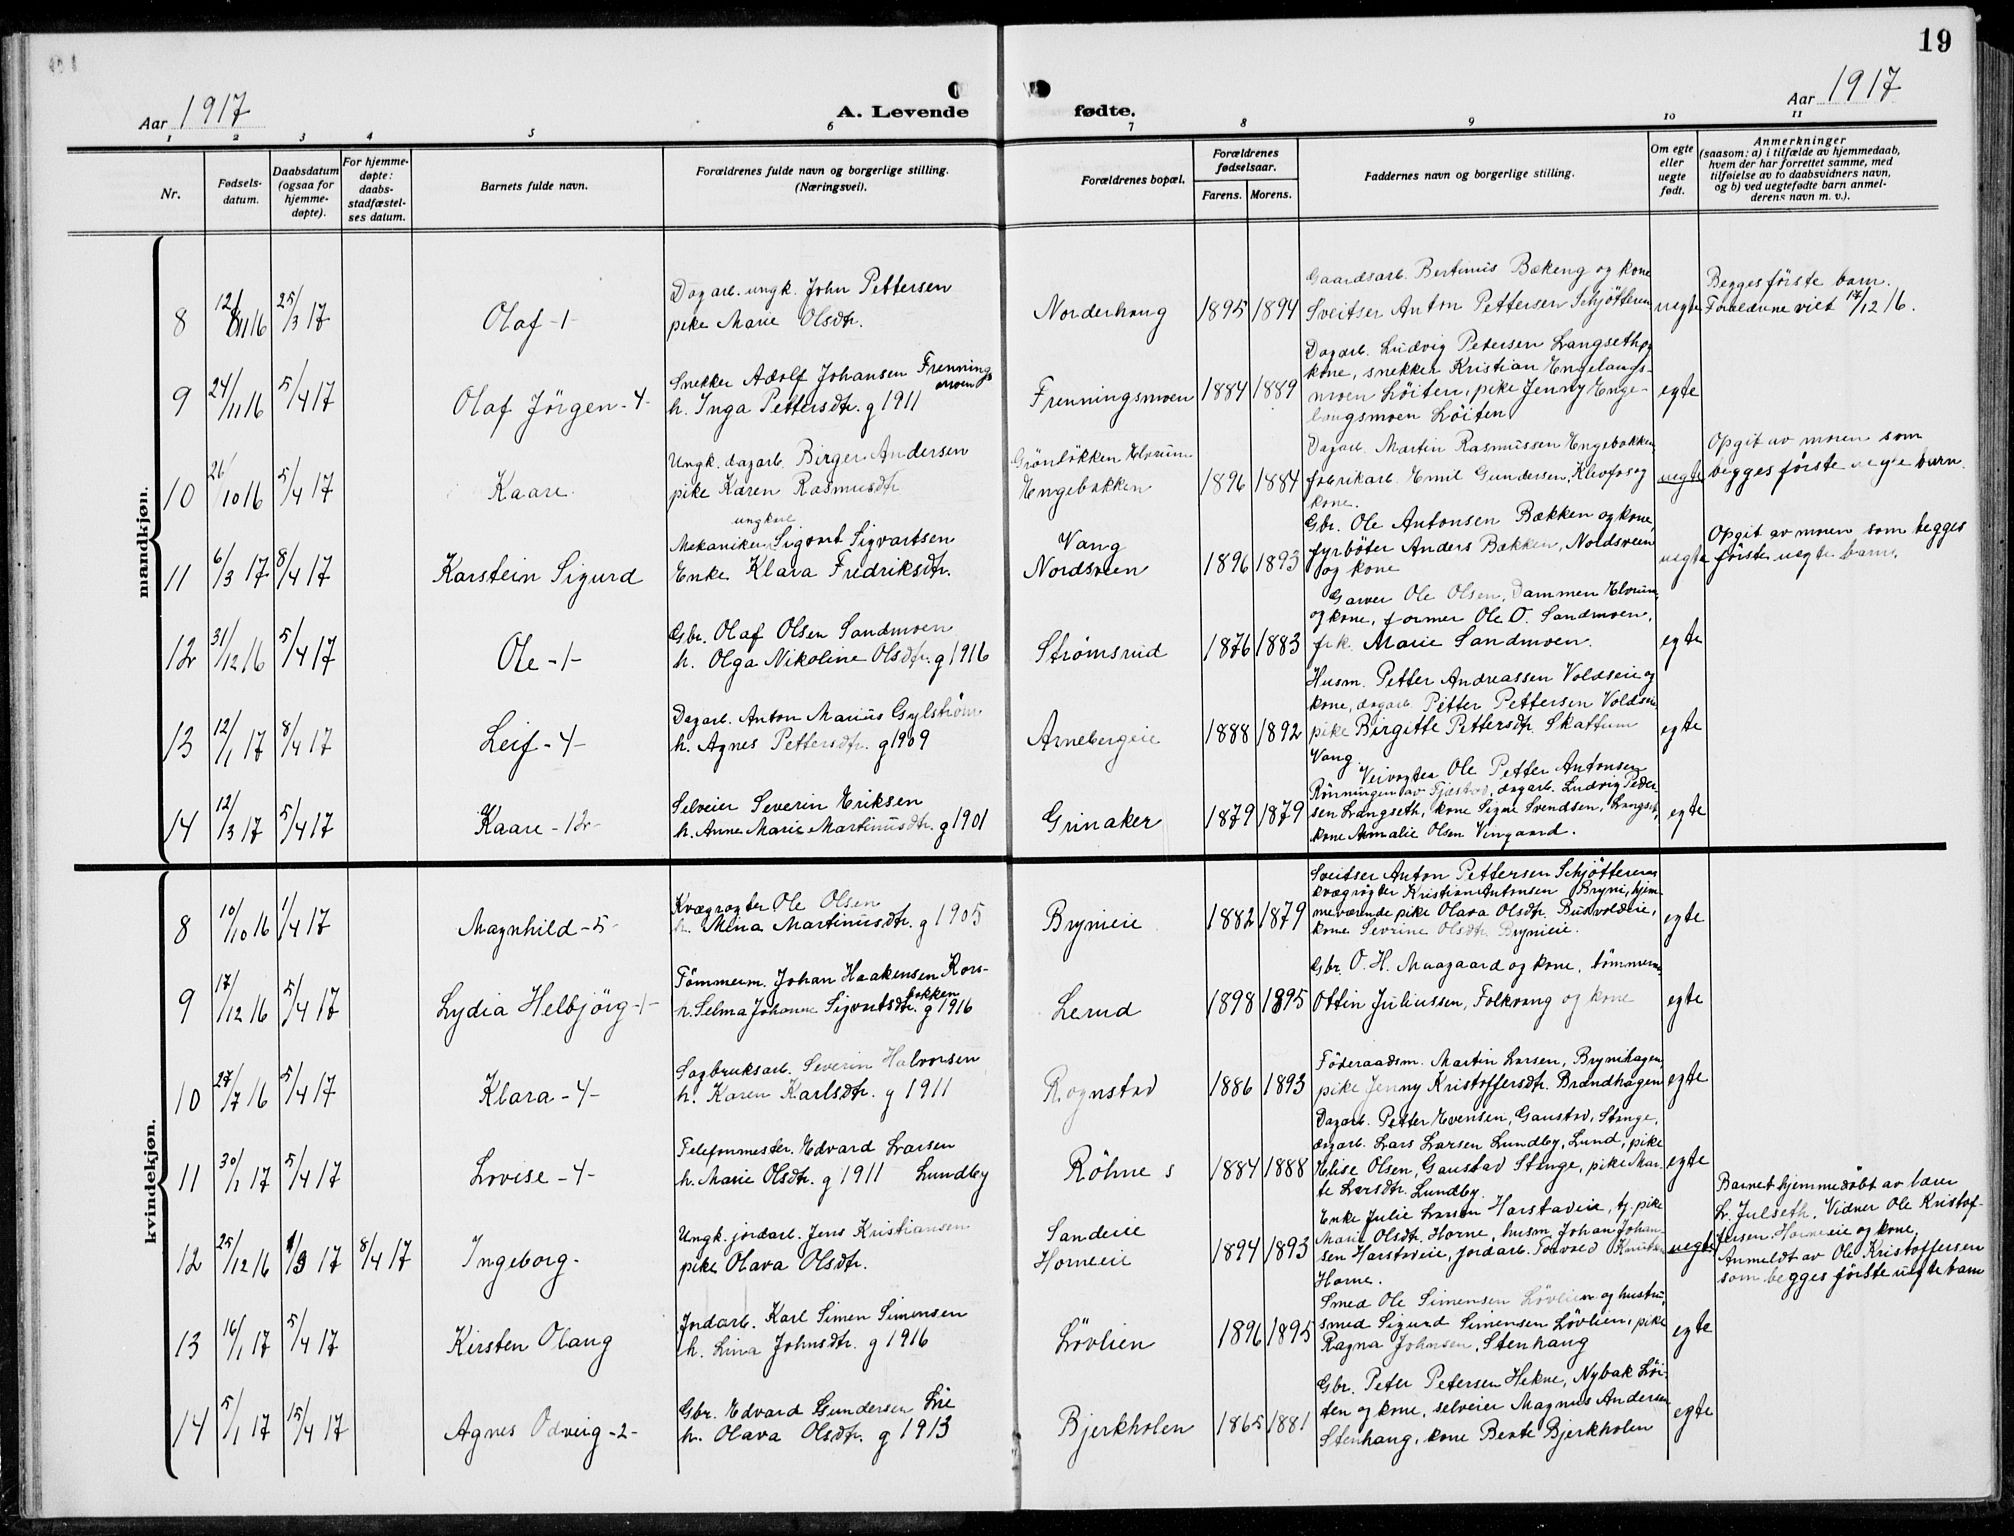 19
Aar 1917
A. Levende
fødte.
Aar 1917
1 2 3 4 5 6 7 8 9 10 11
Nr.
Fødsels-
datum.
Daabsdatum
(ogsaa for
hjemme-
døpte).
For hjemme-
døpte:
daabs-
stadfæstel-
ses datum.
Barnets fulde navn.
Forældrenes fulde navn og borgerlige stilling.
(Næringsvei).
Forældrenes bopæl.
Forældrenes
fødselsaar.
Farens. Morens.
Faddernes navn og borgerlige stilling.
Om egte
eller
uegte
født.
Anmerkninger
(saasom: a) i tilfælde av hjemmedaab,
hvem der har forrettet samme, med
tilføielse av to daabsvidners navn,
og b) ved uegtefødte barn anmel-
derens navn m. v.).
mandkjøn.
8 25/3 17 Olaf -1-
Dagarb. ungk. John Pettersen
pike Marie Olsdtr.
Norderhaug 1895 1894
Gaardsarb. Bertinius Bækeng og kone
Sveitser Anton Pettersen Schjötteren
uegte
Begges förste barn.
Forældrene viet 17/12 16.
9 24/11 16 5/4 17 Olaf Jörgen -4-
Snekker Adolf Johansen Frennings
moen
h. Inga Pettersdtr. g 1911
Frenningsmoen 1884 1889
Dagarb. Ludvig Petersen Langseth og
kone, snekker Kristian Engelaugs-
moen Löiten, pike Jenny Enge-
laugsmoen Löiten
egte
10 26/10 16 5/4 17 Kaare
Ungk. dagarb. Birger Andersen
pike Karen Rasmusdtr
Grönlökken Elverum
Engebakken 1896 1884
Dagarb. Martin Rasmussen Engebakken,
fabrikarb. Emil Gundersen, Klevfos og
kone.
uegte
Opgit av moren som
begges förste uegte barn.
11 6/3 17 8/4 17 Karstein Sigurd
ungkarl
Mekaniker Sigvart Sigvartsen
Enke Klara Fredriksdtr.
Vang
Nordsveen 1896 1893
Gbr. Ole Antonsen Bækken og kone,
fyrböter Anders Bækken, Nordsveen
og kone
uegte
Opgit av moren som begges
förste uegte barn.
12 31/12 16 5/4 17 Ole -1-
Gbr. Olaf Olsen Sandmoen
h. Olga Nikoline Olsdtr. g 1916
Strømsrud 1876 1883
Garver Ole Olsen, Dammen Elverum,
og kone, former Ole O. Sandmoen,
frk. Marie Sandmoen.
egte
13 12/1 17 8/4 17 Leif -4-
Dagarb. Anton Marius Gylström
h. Agnes Pettersdtr. g 1909
Arnebergeie 1888 1892
Husm. Petter Andreassen Voldseie og
kone, dagarb. Petter Pettersen Voldseie
pike Birgitte Pettersdtr. Skattum
Vang
egte
14 12/3 17 5/4 17 Kaare -12-
Selveier Severin Eriksen
h. Anne Marie Martinusdtr. g 1901
Grinaker 1879 1879
Veivogter Ole Petter Antonsen
Rönningen av Fjæstad, dagarb. Ludvig Peder-
sen Langseth, kone Signe Svendsen, Langset,
kone Amalie Olsen Vingaard.
egte
kvindekjøn.
8 10/10 16 1/4 17 Magnhild -5-
Kvægrogter Ole Olsen
h. Mina Martinusdtr. g 1905
Brynieie 1882 1879
Sveitser Anton Pettersen Schjötteren
kvægrögter Kristian Antonsen Bryni, hjem-
meværende pike Olava Olsdtr.
kone Sevrine Olsdtr. Brynieie.
egte
9 17/12 16 5/4 17 Lydia Helbjörg -1-
Tömmerm. Johan Haakensen Kors-
bakken
h. Selma Johanne Sigvartsdtr. g 1916
Lerud 1898 1895
Gbr. O. H. Maagaard og kone, tömmerm.
Ottin Juliussen, Folkvang og kone
egte
10 27/7 16 5/4 17 Klara -4-
Sagbruksarb. Severin Halvorsen
h. Karen Karlsdtr. g 1911
Rognstad 1886 1893
Föderaadsm. Martin Larsen, Brynihagen,
pike Jenny Kristoffersdtr. Brændhagen
egte
11 30/1 17 5/4 17 Lovise -4-
Telefonmester Edvard Larsen
h. Marie Olsdtr. g 1911 Lundby
Röhne s 1884 1888
Dagarb. Petter Evensen, Gaustad, Stange,
dagarb. Lars Larsen Lundby, Lund, pike
Elise Olsen, Gaustad Stange, pike Mar-
te Larsdtr. Lundby.
egte
12 25/12 16 1/3 17 8/4 17 Ingeborg
Ungk. jordarb. Jens Kristiansen
pike Olava Olsdtr.
Sandeie
Horneie 1894 1893
Enke Julie Larsen Harstadeie, tj. pike
Marie Olsdtr. Horne, husm. Johan Johan-
sen Harstadeie, jordarb. Torvald Knutsen
Horne.
uegte
Barnet hjemmedöbt av lærer
L. Julseth. Vidner Ole Kristof-
fersen Horneie og kone.
Anmeldt av Ole Kristoffersen
som begges förste uegte barn
13 16/1 17 5/4 17 Kirsten Olaug
Jordarb. Karl Simen Simensen
h. Lina Johnsdtr. g 1916
Lövlien 1896 1895
Smed Ole Simensen Lövlien og hustru,
smed Sigurd Simensen Lövlien, pike
Ragna Johnsen, Stenhaug
egte
14 5/1 17 15/4 17 Agnes Odveig -2-
Gbr. Edvard Gundersen Lie
h. Olava Olsdtr. g 1913
Bjerkholen 1865 1881
Gbr. Peter Petersen Hekne, Nybak Löi-
ten og kone, selveier Magnus Andersen
Stenhaug, kone Beate Bjerkholen
egte